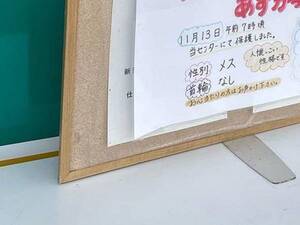 あずか
11月13日 午前7時頃
当センターにて保護しました。
人懐っこい
性格です
性別 メス
首輪 なし
お心当たりの方はお声かけ下さい。
新
仕